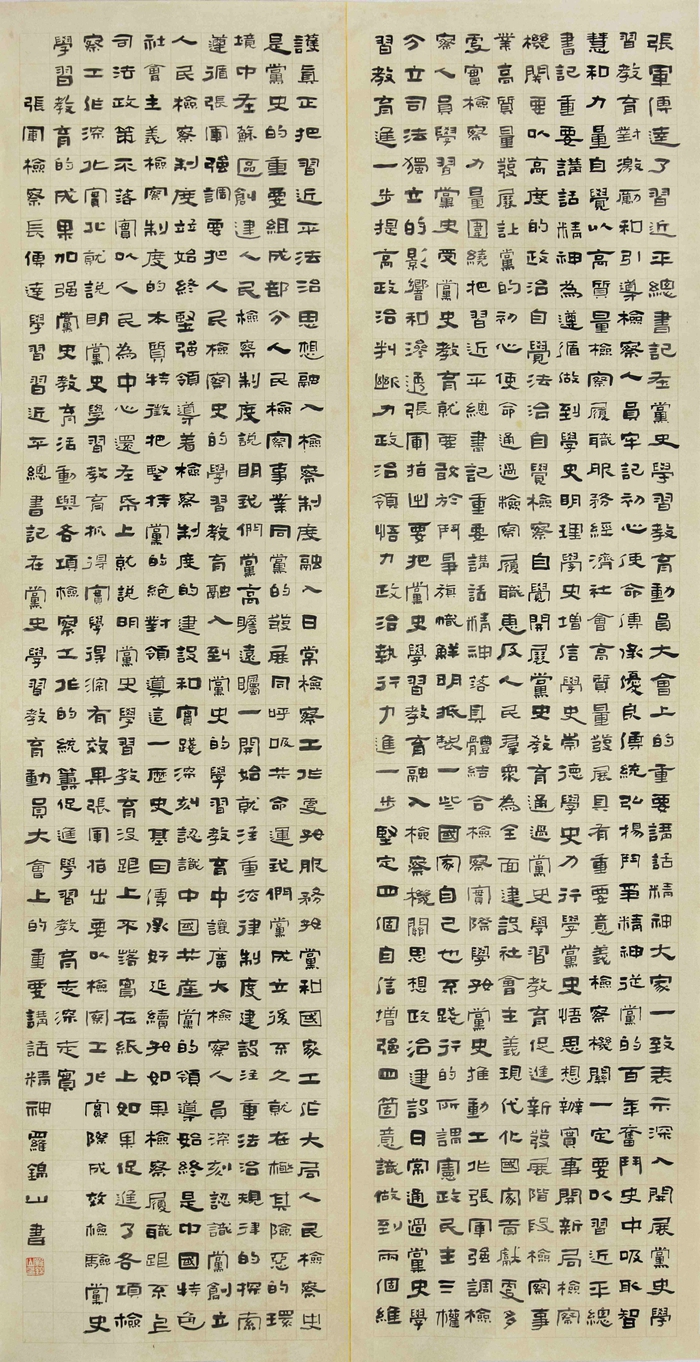 張軍傳達了習近平總書記在黨史學習教育動員大會上的重要講話精神大家一致表示深入開展黨史學
習教育對激勵和引導檢察人員牢記初心使命傳承優良傳統弘揚鬥爭精神從黨的百年奮鬥史中吸取智
慧和力量自覺以高質量檢察履職服務經濟社會高質量發展具有重要意義檢察機關一定要以習近平總
書記重要講話精神為遵循做到學史明理學史增信學史崇德學史力行學黨史悟思想辦實事開新局檢察
機關要以高度的政治自覺法治自覺檢察自覺開展黨史教育通過黨史學習教育促進新發展階段檢察事
業高質量發展讓黨的初心使命通過檢察履職惠及人民羣眾為全面建設社會主義現代化國家貢獻更多
更實檢察力量圍繞把習近平總書記重要講話精神落具體結合檢察實際學好黨史推動工作張軍強調檢
察人員學習黨史受黨史教育就要敢於鬥爭旗幟鮮明抵制一些國家自己也不踐行的所謂憲政民主三權
分立司法獨立的影響和滲透張軍指出要把黨史學習教育融入檢察機關思想政治建設日常通過黨史學
習教育進一步提高政治判斷力政治領悟力政治執行力進一步堅定四個自信增強四箇意識做到兩個維
護真正把習近平法治思想融入檢察制度融入日常檢察工作更好服務好黨和國家工作大局人民檢察史
是黨史的重要組成部分人民檢察事業同黨的發展同呼吸共命運我們黨成立後不久就在極其險惡的環
境中在蘇區創建人民檢察制度說明我們黨高瞻遠矚一開始就注重法律制度建設注重法治規律的探索
遵循張軍強調要把人民檢察史的學習教育融入到黨史的學習教育中讓廣大檢察人員深刻認識黨創立
人民檢察制度並始終堅強領導着檢察制度的建設和實踐深刻認識中國共產黨的領導始終是中國特色
社會主義檢察制度的本質特徵把堅持黨的絕對領導這一歷史基因傳承好延續好如果檢察履職跟不上
司法政策不落實以人民為中心還在紙上就說明黨史學習教育沒跟上不落實在紙上如果促進了各項檢
察工作深化實化就說明黨史學習教育抓得實學得深有效果張軍指出要以檢察工作實際成效檢驗黨史
學習教育的成果加強黨史教育活動與各項檢察工作的統籌促進學習教育走深走實
張軍檢察長傳達學習習近平總書記在黨史學習教育動員大會上的重要講話精神羅錦山書